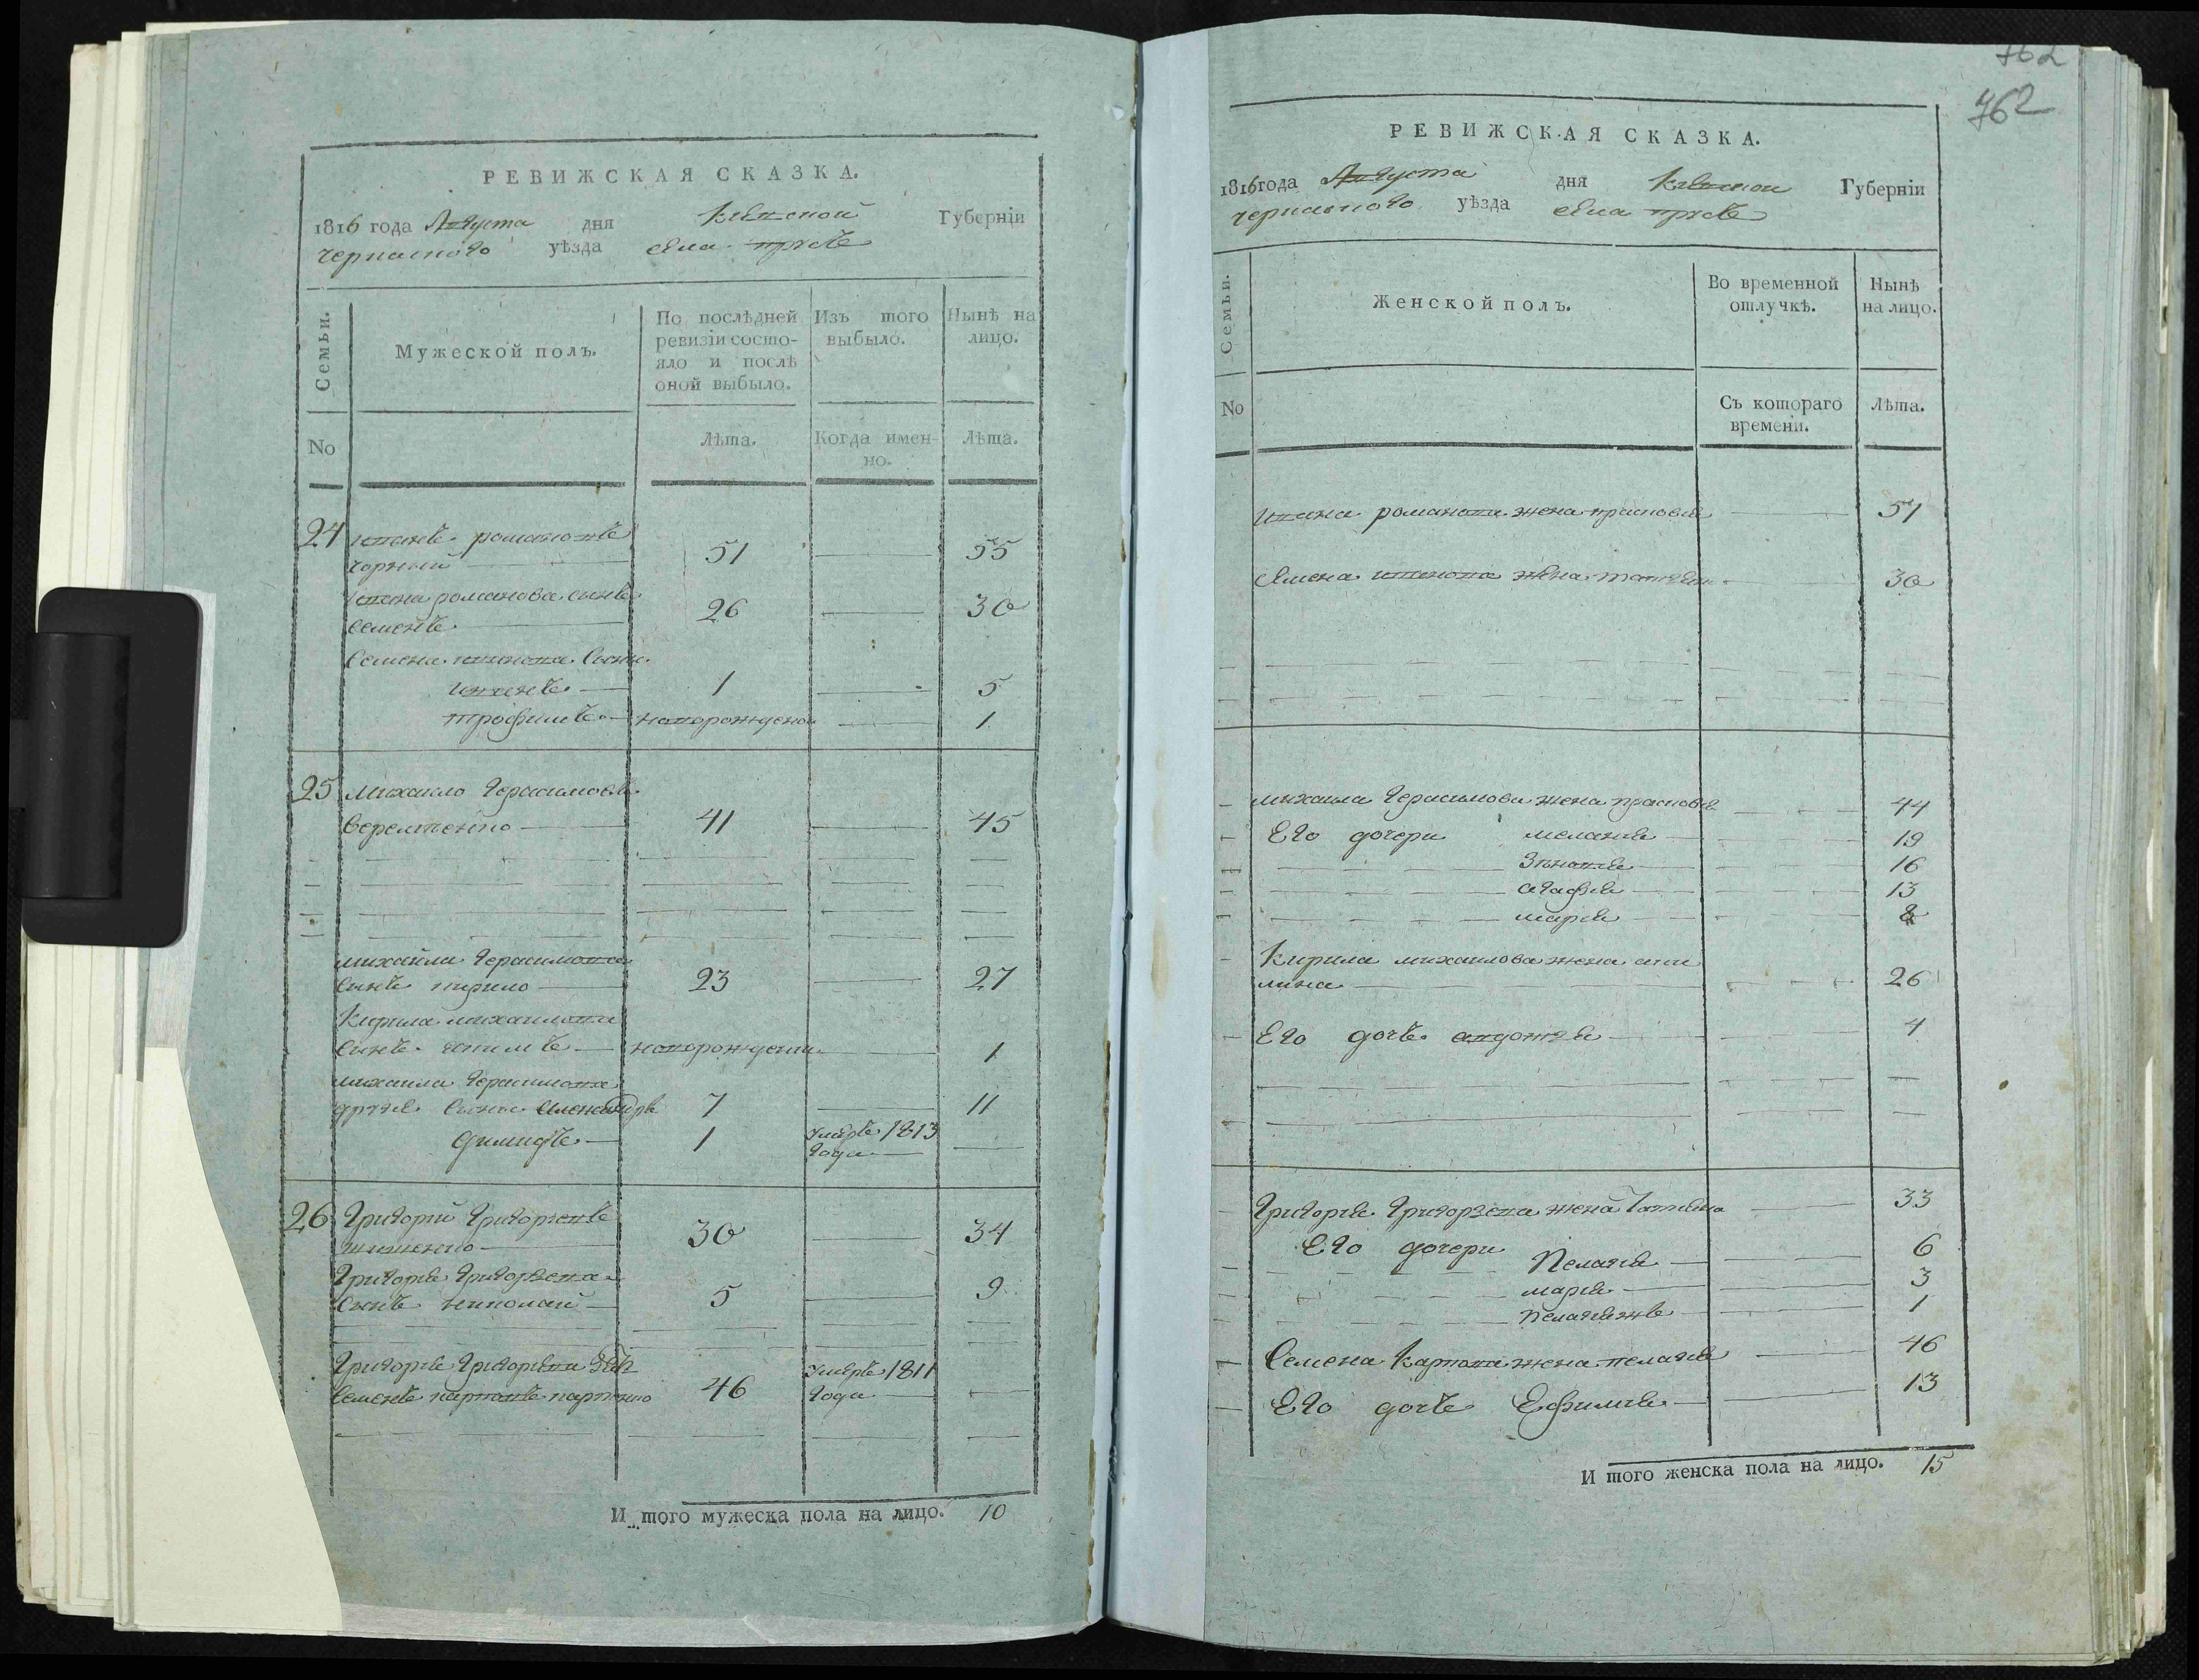 РЕВИЖСКАЯ СКАЗКА.
1816 года Августа дня Киевской Губерніи
черкаского уѣзда села прусъ
Семьи.
Мужеской полъ.
По послѣдней ревизіи состо-
яло и послѣ
оной выбыло.
Изъ того
выбыло.
Нынѣ на
лицо.
No
Лѣта.
Когда имен-
но.
Лѣта.
24 иванъ романовъ
чорный 51 55
ивана романова сынъ
семенъ 26 30
Семена иванова Сыны
иванъ 1 5
трофимъ новорожденой 1
25 михайло Герасимовъ
веремѣенко 41 45
михайла Герасимова
Сынъ кирило 23 27
Кирила михайлова
Сынъ новорожденны 1
михайла Герасимова
другие Сыны александръ 7 11
филипъ 1 умеръ 1813
года
26 Григорий Григориевъ
30 34
Григория Григориева
Сынъ николай 5 9
Григория Григориева
Семенъ карповъ карпенко 46 Умеръ 1811
года
И того мужеска пола на лицо. 10
762
762
РЕВИЖСКАЯ СКАЗКА.
1816 года Августа дня Киевской Губерніи
черкаского уѣзда села прусъ
Семьи.
Женской полъ.
Во временной
отлучкѣ.
Нынѣ
на лицо.
No
Съ котораго
времени.
Лѣта.
ивана романова жена прасковия 51
Семена иванова жена татияна 30
михайла Герасимова жена прасковия 44
Его дочери мелания 19
Зѣновия 16
агафия 13
мария 8
Кирила михайлова жена аки
лина 26
Его дочь авдотия 4
Григория Григориева жена Татияна 33
Его дочери Пелагия 6
мария 3
Пелагия жъ 1
Семена Карпова жена пелагия 46
Его дочь Ефимия 13
И того женска пола на лицо. 15